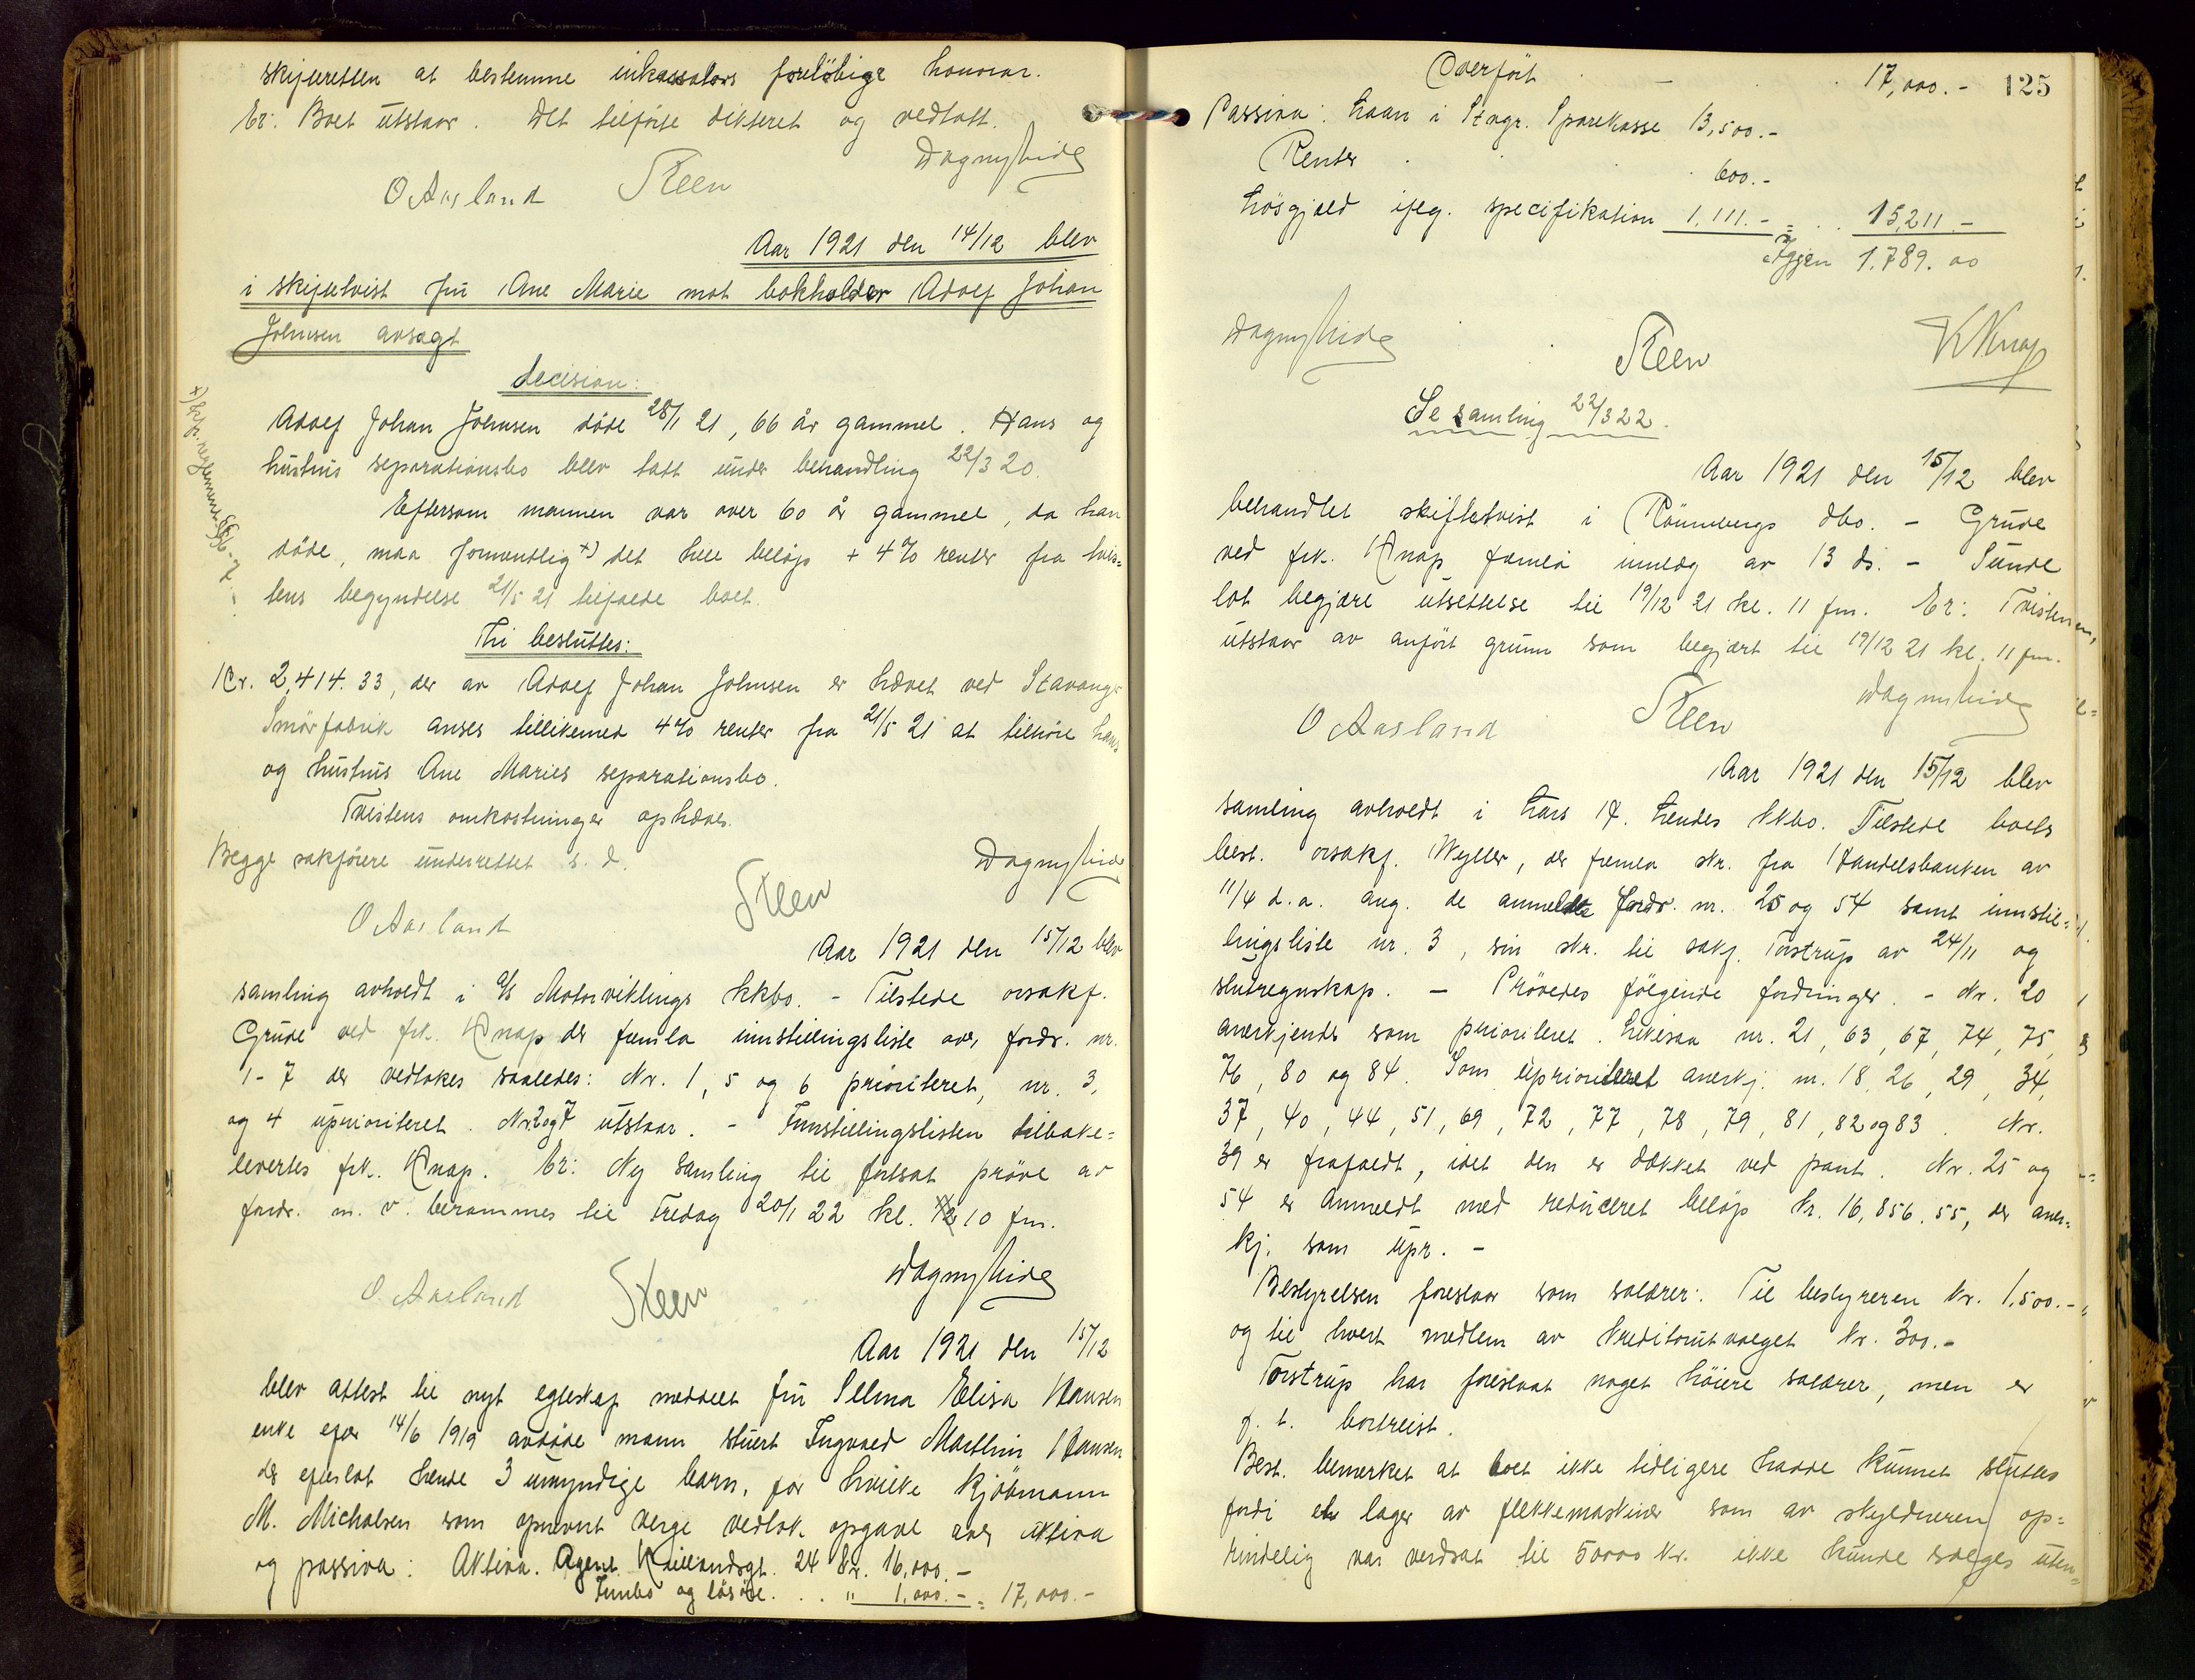 skifteretten at bestemme inkassators foreløbige honorar.
Er: Boet utstaar. Det tilførte dikteret og vedtatt.
Dagny Lide
O Aasland Steen
Aar 1921 den 14/12 blev
i skiftetvist fru Ane Marie mot bokholder Adolf Johan
Johnsen avsagt
decision:
Adolf Johan Johnsen døde 28/1 21, 66 år gammel. Hans og
hustrus separationsbo blev tatt under behandling 22/3 20.
Eftersom mannen var over 60 år gammel, da han
døde, maa formentlig x) det hele beløp + 4% renter fra tvis=
tens begyndelse 21/5 21 tilfalde boet.
Thi besluttes:
Kr. 2,414.33, der av Adolf Johan Johnsen er hævet ved Stavanger
Smörfabrik anses tillikemed 4% renter fra 21/5 21 at tilhøre hans
og hustrus Ane Maries separationsbo.
Tvistens omkostninger ophæves.
Begge sakførere underrettet s. d.
Dagny Lide
O Aasland Steen
Aar 1921 den 15/12 blev
samling avholdt i A/S Motorviklings kkbo. - Tilstede orsakf.
Grude ved frk. Knap der fremla innstillingsliste over fordr. nr.
1-7 der vedtokes saaledes: Nr. 1, 5 og 6 prioriteret, nr. 3,
og 4 uprioriteret. Nr. 2 og 7 utstaar. - Innstillingslisten tilbake=
levertes frk. Knap. Er: Ny samling til fortsat prøve av
fordr. m. v. berammes til Fredag 20/1 22 kl. 10 fm.
Dagny Lide
O. Aasland Steen
Aar 1921 den 15/12
blev attest til nyt egteskap meddelt fru Selma Elisa Hansen
enke efter 14/6 1919 avdøde mann stuert Ingvald Marthin Hansen
der efterlot hende 3 umyndige barn, for hvilke kjøbmann
M. Michalsen som opnevnt verge vedtok opgave over aktiva
og passiva: Aktiva. Agent Kiellandsgt. 24 Kr. 16,000.-
Innbo og løsøre. . . " 1,000.- = 17,000.-
125
Overført - 17,000.-
Passiva: Laan i Stvgr. Sparekasse 13,500.-
Renter . . 600.-
Løsgjæld ifølg. specifikation 1,111.- = . . 15,211.-
Igjen 1,789.00
Dagny Lide Steen K Knap
Se samling 22/3 22.
Aar 1921 den 15/12 blev
behandlet skiftetvist i Rønnebergs dbo. - Grude
ved frk. Knap fremla innlæg av 13 ds. - Sunde
lot begjære utsettelse til 19/12 21 kl. 11 fm. Er: Tvisten
utstaar av anført grunn som begjært til 19/12 21 kl. 11 fm.
Dagny Lide
O Aasland Steen
Aar 1921 den 15/12 blev
samling avholdt i Lars H. Lendes kkbo. Tilstede boets
best. orsakf. Wyller, der fremla skr. fra Handelsbanken av
11/4 d.a. ang. de anmeldte fordr. nr. 25 og 54 samt innstil=
lingsliste nr. 3, sin skr. til sakf. Torstrup av 24/11 og
slutregnskap. - Prøvedes følgende fordringer. - Nr. 20
anerkjendt som prioriteret. Likesaa nr. 21, 63, 67, 74, 75,
76, 80 og 84. Som uprioriteret anerkj. nr. 18, 26, 29, 34,
37, 40, 44, 51, 69, 72, 77, 78, 79, 81, 82 og 83. Nr.
39 er frafaldt, idet den er dækket ved pant. Nr. 25 og
54 er anmeldt med reduceret beløp Kr. 16,856.55, der aner=
kj. som upr. -
Bestyrelsen foreslaar som salærer: Til bestyreren Kr. 1,500.-
og til hvert medlem av kreditorutvalget Kr. 300.-
Torstrup har foreslaat noget høiere salærer, men er
p. t. bortreist.
Best. bemerket at boet ikke tidligere hadde kunnet sluttes
fordi et lager av flekkemaskiner som av skyldneren op=
rindelig var verdsat til 50000 Kr. ikke kunde sælges uten=